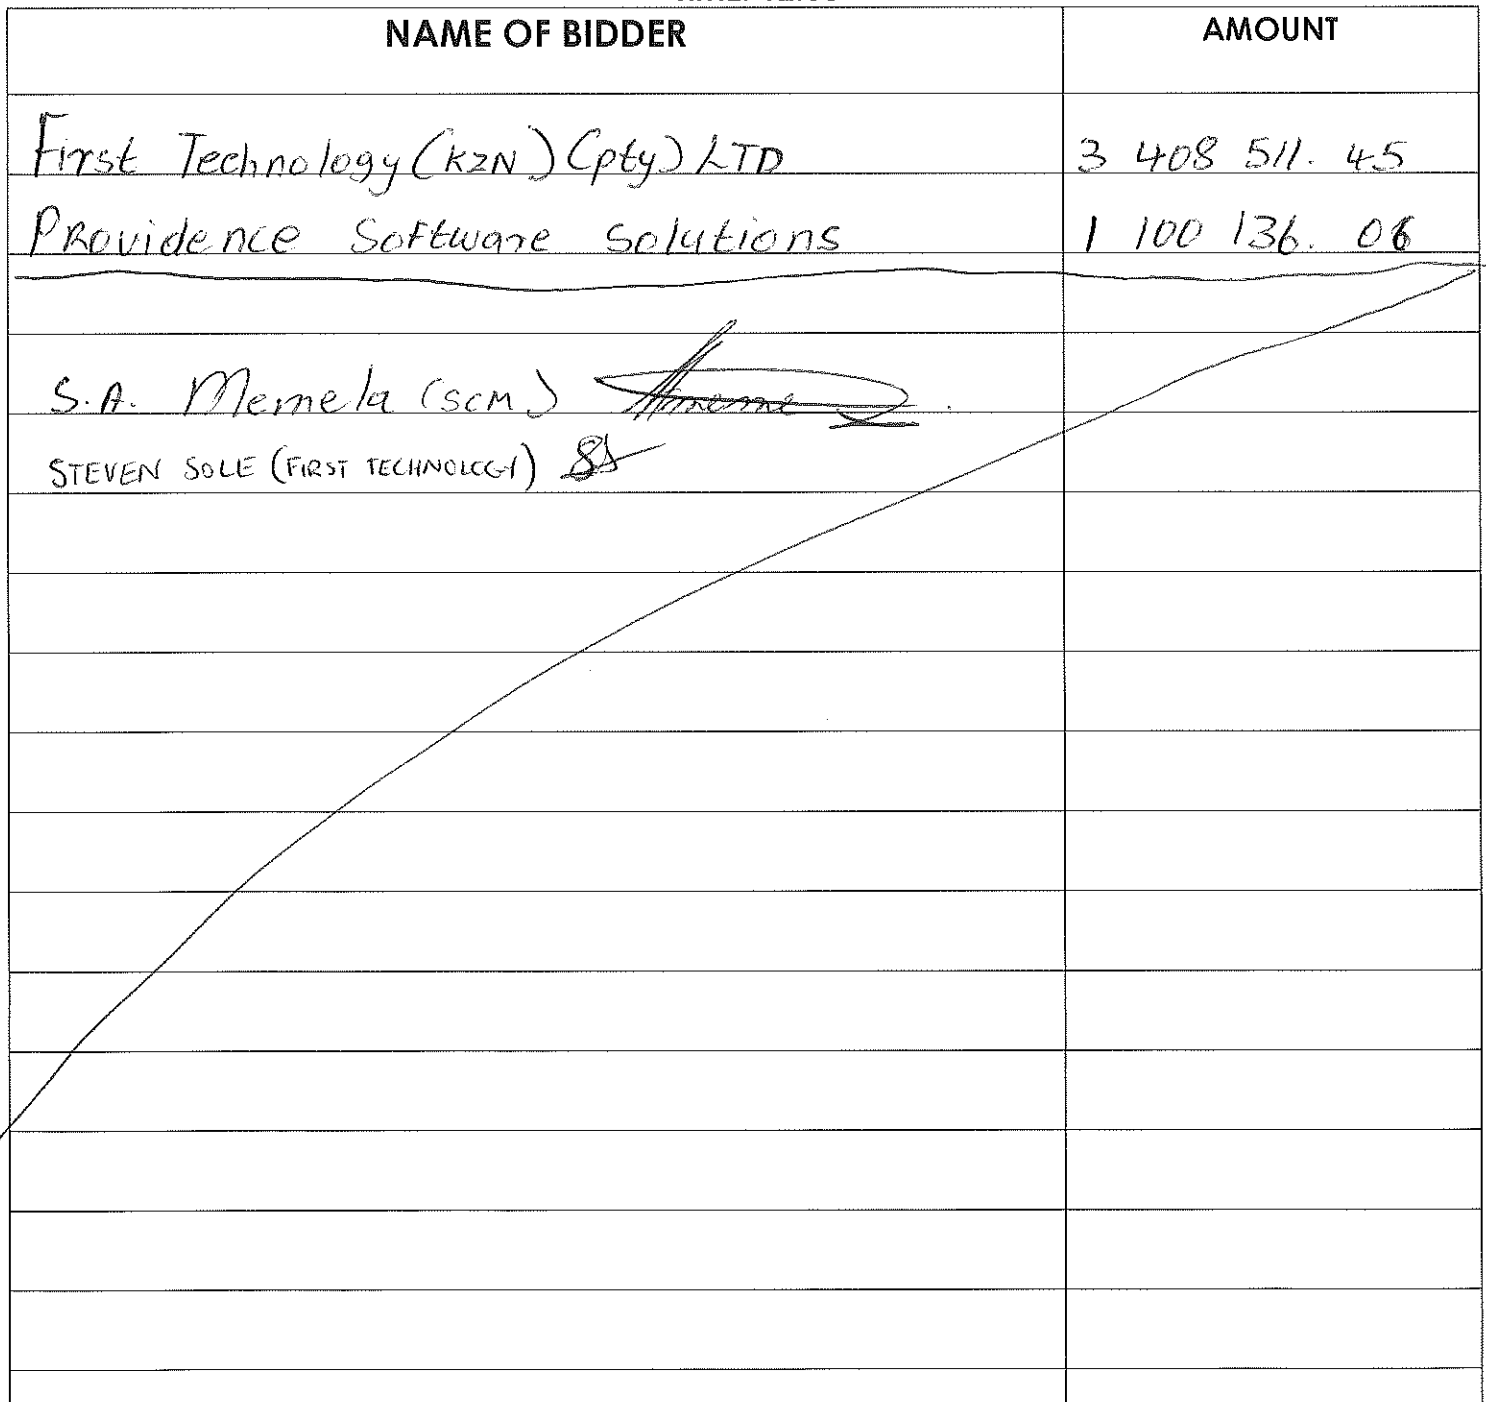 NAME OF BIDDER AMOUNT
First Technology (KZN) (pty) LTD 3 408 511. 45
Providence Software Solutions 1 100 136. 06
S.A. Memela (SCM)
STEVEN SOLE (FIRST TECHNOLOGY)